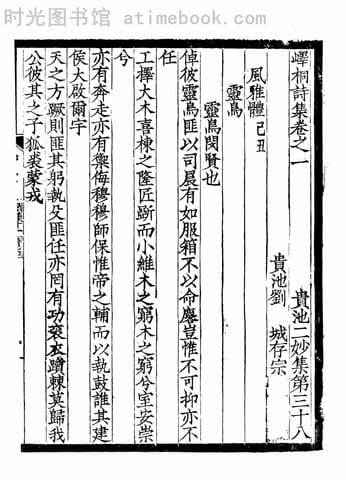 时光图书馆 atimebook.com
嶧桐詩集卷之一
貴池二妙集第三十八
貴池劉 城存宗
風雅體己丑
靈鳥
靈鳥閔賢也
倬彼靈鳥匪以司晨有如服箱不以命麐豈惟不可抑亦不
任
工擇大木喜棟之隆匠斲而小維木之窮木之窮兮室安崇
兮
亦有奔走亦有禦侮穆穆師保惟帝之輔而以執鼓誰其建
侯大啟爾字
天之方蹶則匪其躬執殳匪任亦罔有功袞衣躓棘莫歸我
公彼其之子狐裘蒙戎